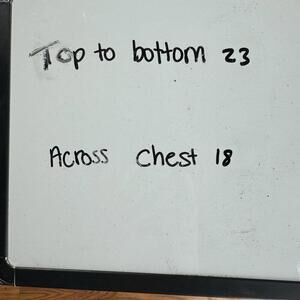 Top to bottom 23
Across chest 18